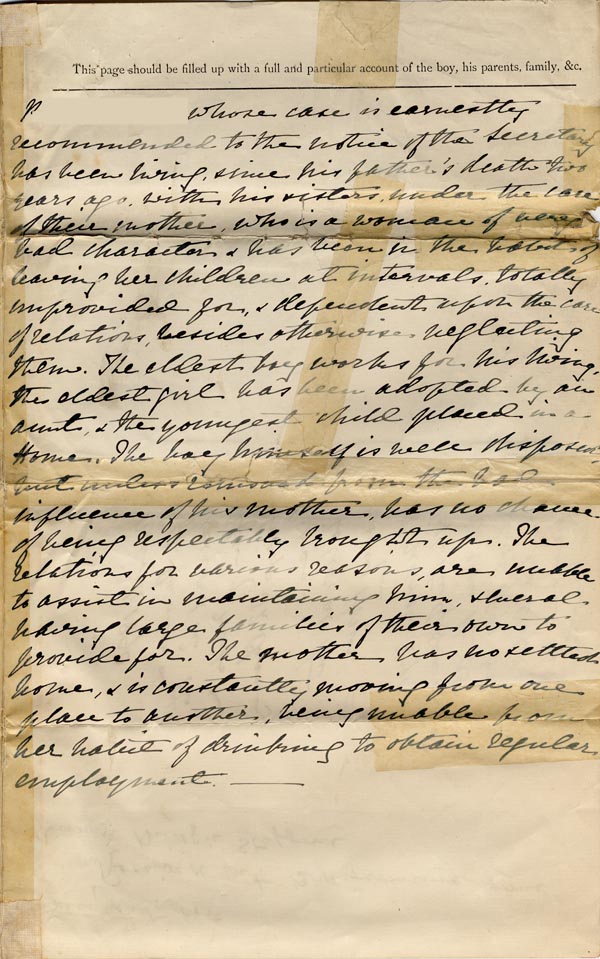 This page should be filled up with a full and particular account of the boy, his parents, family, &c.
P whose case is earnestly
recommended to the notice of the Secretary
has been living, since his father's death two
years ago, with his sisters, under the care
of their mother, who is a woman of very
bad character & has been in the habit of
leaving her children at intervals, totally
unprovided for, & dependent upon the care
of relations, besides otherwise neglecting
them. The eldest boy works for his living,
the eldest girl has been adopted by an
aunt, & the youngest child placed in a
Home. The boy himself is well disposed,
but unless removed from the bad
influence of his mother, has no chance
of being respectably brought up. The
relations for various reasons, are unable
to assist in maintaining him, several
having large families of their own to
provide for. The mother has no settled
home, & is constantly moving from one
place to another, being unable from
her habit of drinking to obtain regular
employment. —